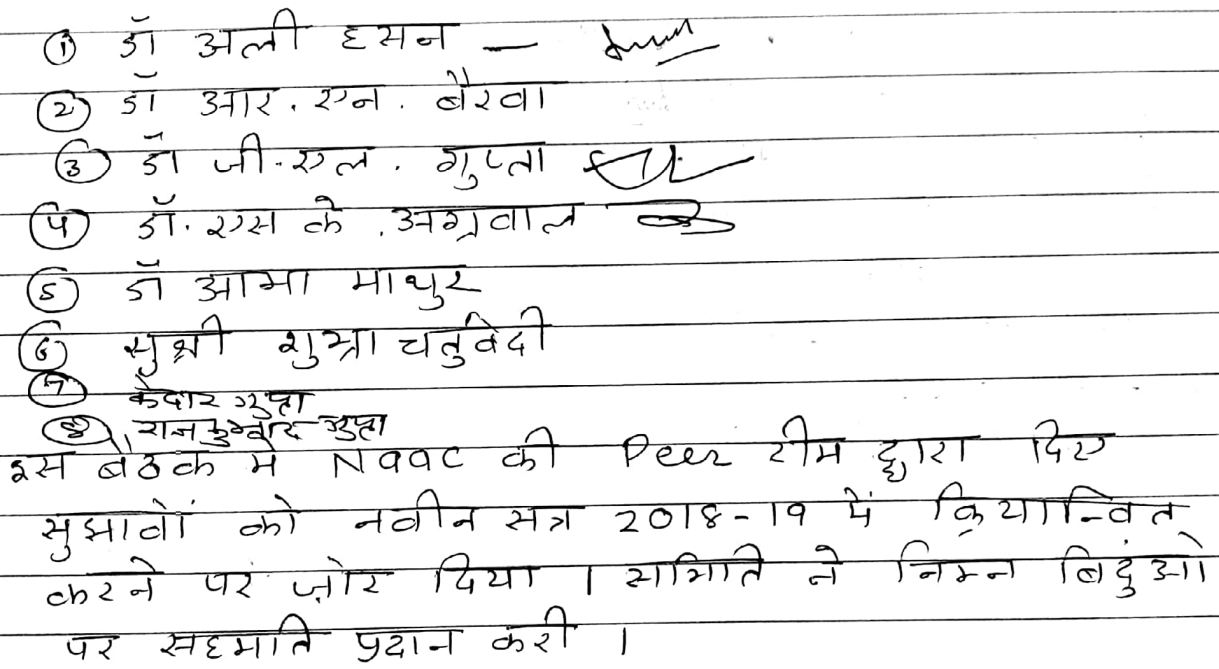 ① डॉ अली हसन —
② डॉ आर. एन. बैरवा
③ डॉ जी.एल. गुप्ता
④ डॉ. एस के . अग्रवाल
⑤ डॉ आभा माथुर
⑥ सुश्री शुभ्रा चतुर्वेदी
⑦ केदार गुप्ता
⑧ राजकुमार गुप्ता
इस बैठक मे Naac की Peer टीम द्वारा दिए
सुझावों को नवीन सत्र 2018-19 में क्रियान्वित
करने पर ज़ोर दिया । समिति ने निम्न बिंदुओ
पर सहमति प्रदान करी ।